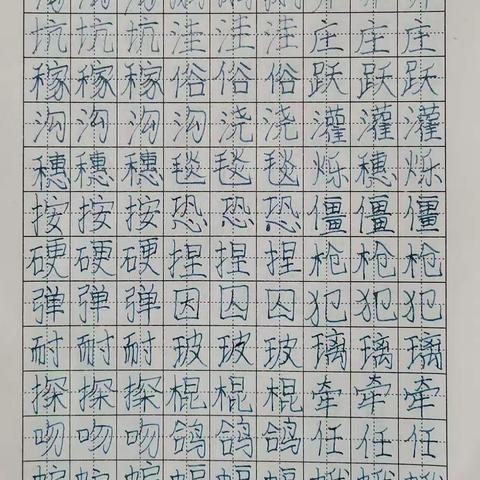 坑坑坑洼洼洼庄庄庄
稼稼稼俗俗俗跃跃跃
沟沟沟沟浇浇灌灌灌
穗穗穗毯毯毯烁穗烁
按按按恐恐恐僵僵僵
硬硬硬捏捏捏枪枪枪
弹弹弹因囚囚犯犯犯
耐耐耐玻玻玻璃璃璃
探探探棍棍棍牵牵牵
吻吻吻鸽鸽鸽任任任